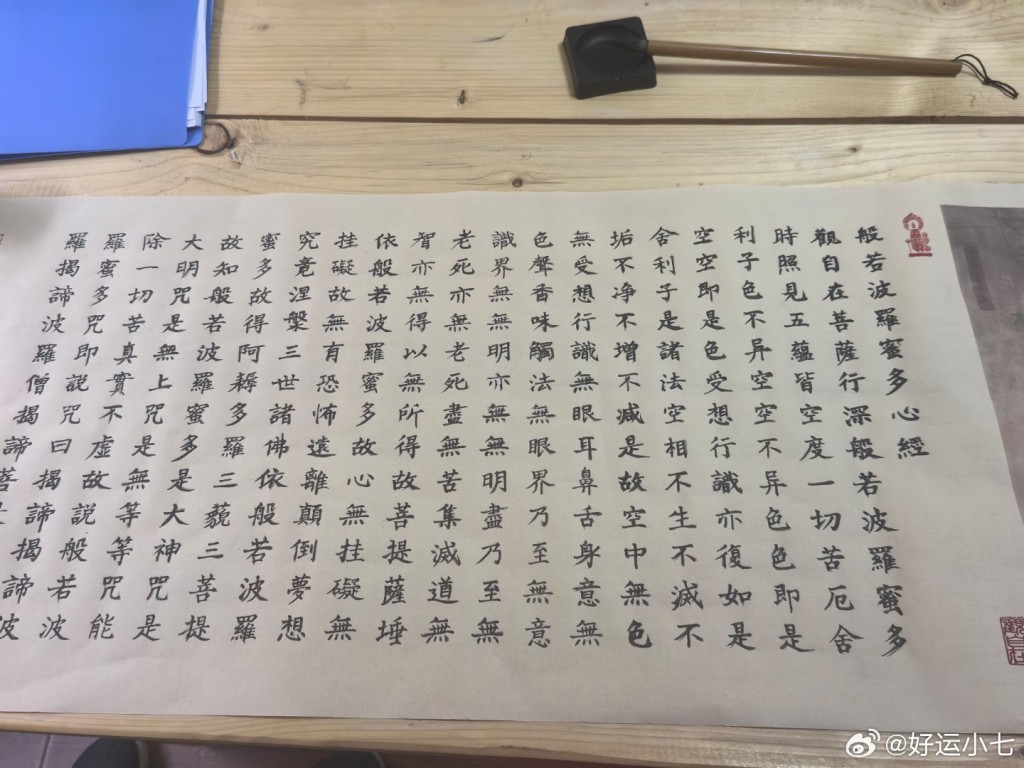 般若波羅蜜多心經
觀自在菩薩行深般若波羅蜜多
時照見五蘊皆空度一切苦厄舍
利子色不异空空不异色色即是
空空即是色受想行識亦復如是
舍利子是諸法空相不生不滅不
垢不净不增不减是故空中無色
無受想行識無眼耳鼻舌身意無
色聲香味觸法無眼界乃至無意
識界無無明亦無無明盡乃至無
老死亦無老死盡無苦集滅道無
智亦無得以無所得故菩提薩埵
依般若波羅蜜多故心無挂礙無
挂礙故無有恐怖遠離顛倒夢想
究竟涅槃三世諸佛依般若波羅
蜜多故得阿耨多羅三藐三菩提
故知般若波羅蜜多是大神咒是
大明咒是無上咒是無等等咒能
除一切苦真實不虛故説般若波
羅蜜多咒即説咒曰揭諦揭諦波
羅揭諦波羅僧揭諦菩
@好运小七